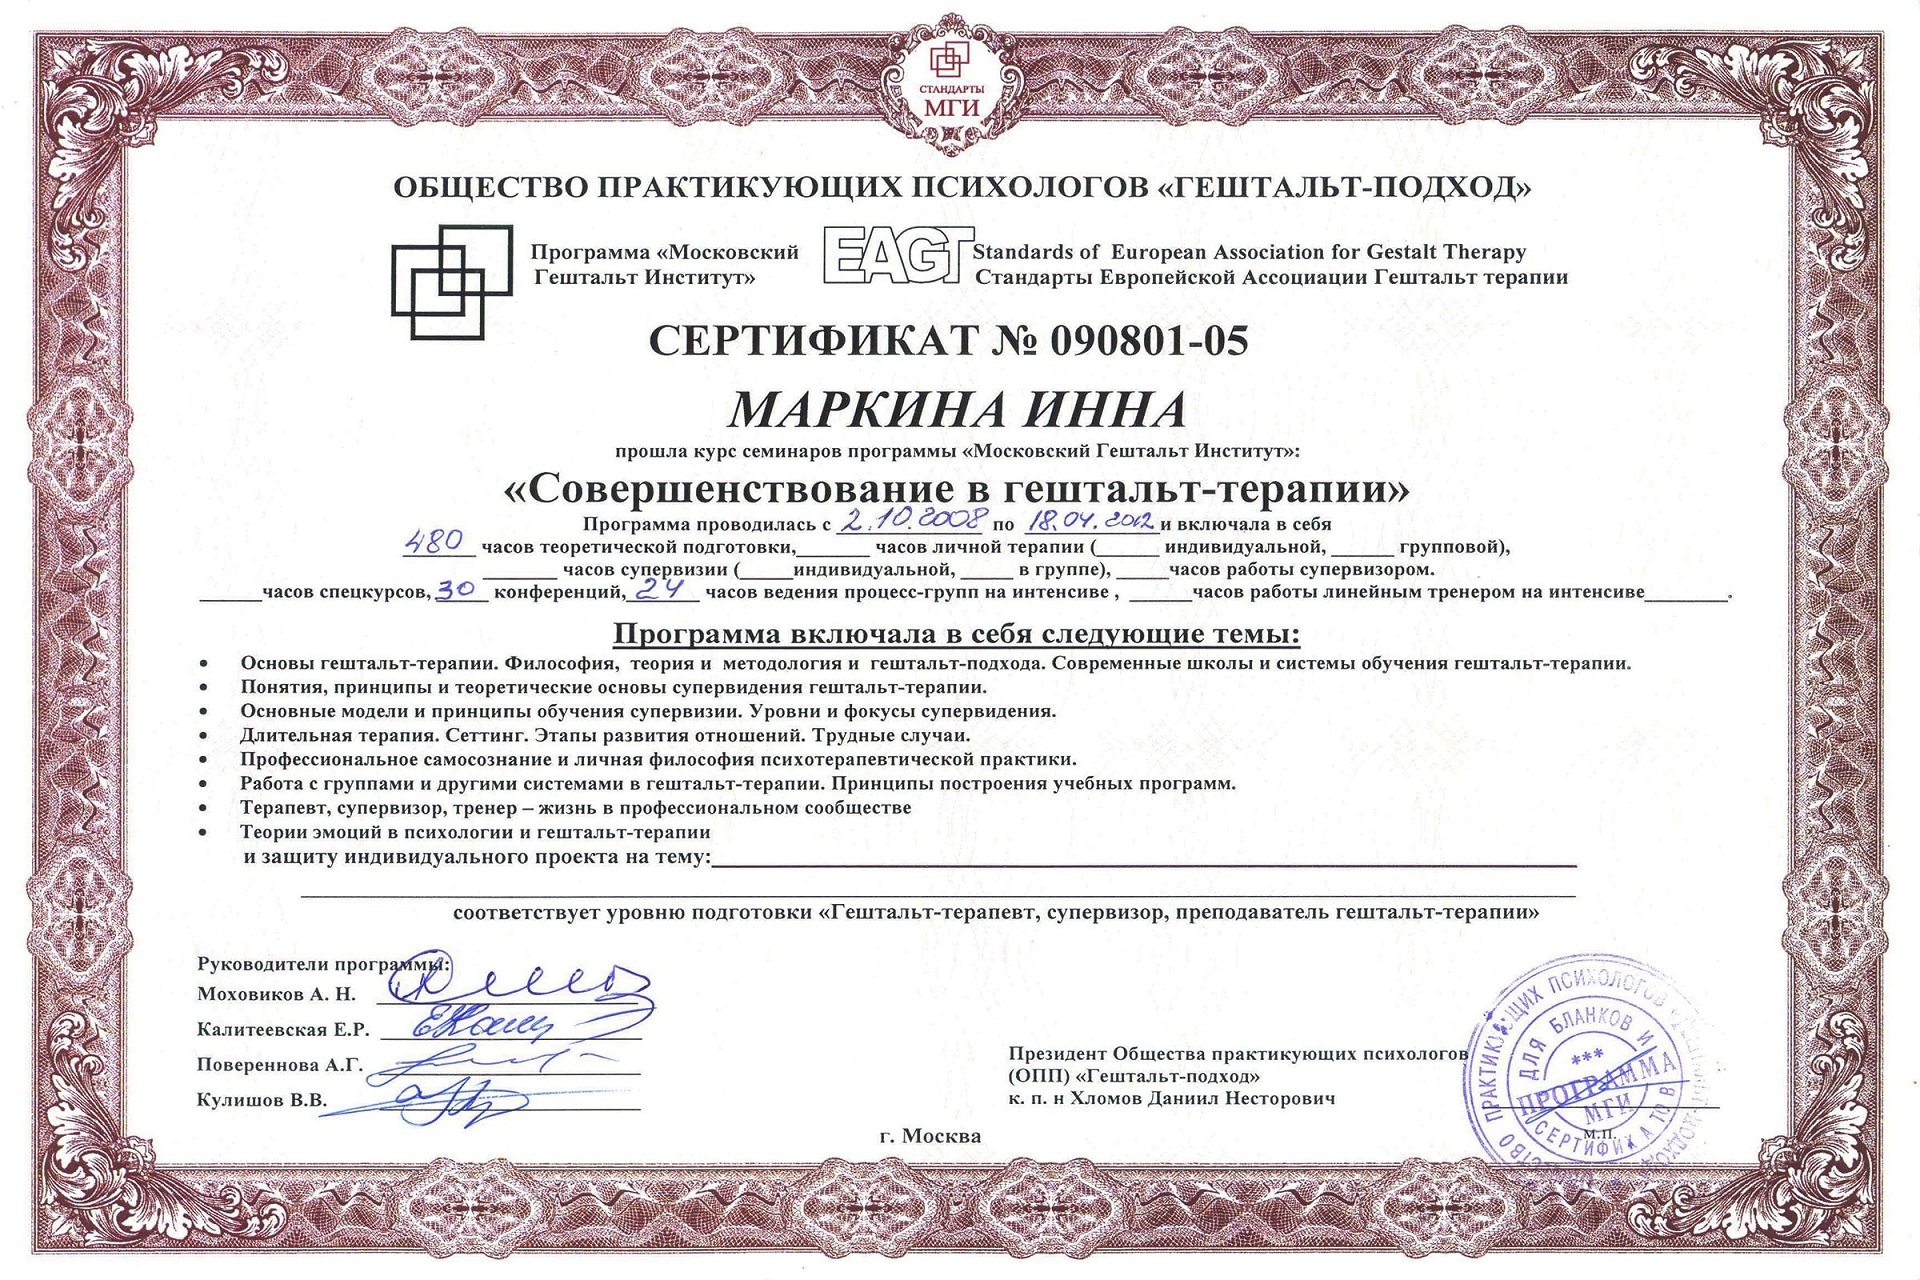 СТАНДАРТЫ
МГИ
ОБЩЕСТВО ПРАКТИКУЮЩИХ ПСИХОЛОГОВ «ГЕШТАЛЬТ-ПОДХОД»
Программа «Московский
Гештальт Институт»
EAGT
Standards of European Association for Gestalt Therapy
Стандарты Европейской Ассоциации Гештальт терапии
СЕРТИФИКАТ № 090801-05
МАРКИНА ИННА
прошла курс семинаров программы «Московский Гештальт Институт»:
«Совершенствование в гештальт-терапии»
Программа проводилась с 2.10.2008 по 18.04.2012 и включала в себя
480 часов теоретической подготовки,______ часов личной терапии (_____ индивидуальной, _____ групповой),
______ часов супервизии (____индивидуальной, ____ в группе), ____часов работы супервизором.
_____часов спецкурсов, 30 конференций, 24 часов ведения процесс-групп на интенсиве , _____часов работы линейным тренером на интенсиве_______.
Программа включала в себя следующие темы:
• Основы гештальт-терапии. Философия, теория и методология и гештальт-подхода. Современные школы и системы обучения гештальт-терапии.
• Понятия, принципы и теоретические основы супервидения гештальт-терапии.
• Основные модели и принципы обучения супервизии. Уровни и фокусы супервидения.
• Длительная терапия. Сеттинг. Этапы развития отношений. Трудные случаи.
• Профессиональное самосознание и личная философия психотерапевтической практики.
• Работа с группами и другими системами в гештальт-терапии. Принципы построения учебных программ.
• Терапевт, супервизор, тренер – жизнь в профессиональном сообществе
• Теории эмоций в психологии и гештальт-терапии
и защиту индивидуального проекта на тему:
соответствует уровню подготовки «Гештальт-терапевт, супервизор, преподаватель гештальт-терапии»
Руководители программы:
Моховиков А. Н.
Калитеевская Е.Р.
Повереннова А.Г.
Кулишов В.В.
Президент Общества практикующих психологов
(ОПП) «Гештальт-подход»
к. п. н Хломов Даниил Несторович
г. Москва
ПРАКТИКУЮЩИХ ПСИХОЛОГОВ
ДЛЯ БЛАНКОВ И
***
ПРОГРАММА
МГИ
СЕРТИФИКАТОВ
м.п.